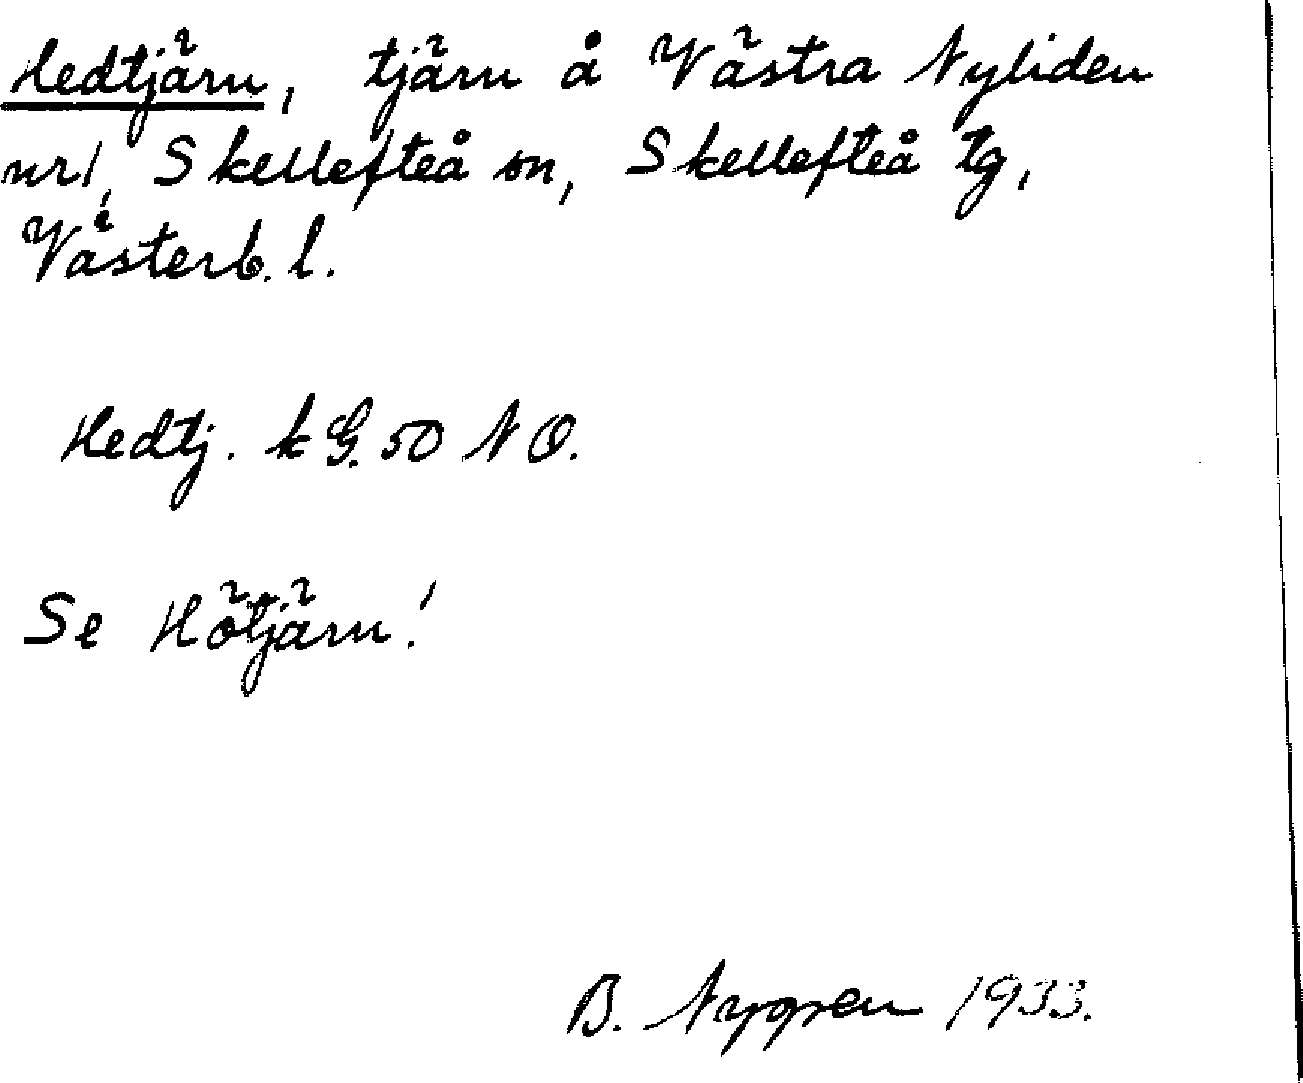 Hedtjärn, tjärn å Västra Nyliden
nr1, Skellefteå sn, Skellefteå tg,
Västerb. l.
Hedtj. k G. 50 N O.
Se Hötjärn!
B. Nygren 1933.